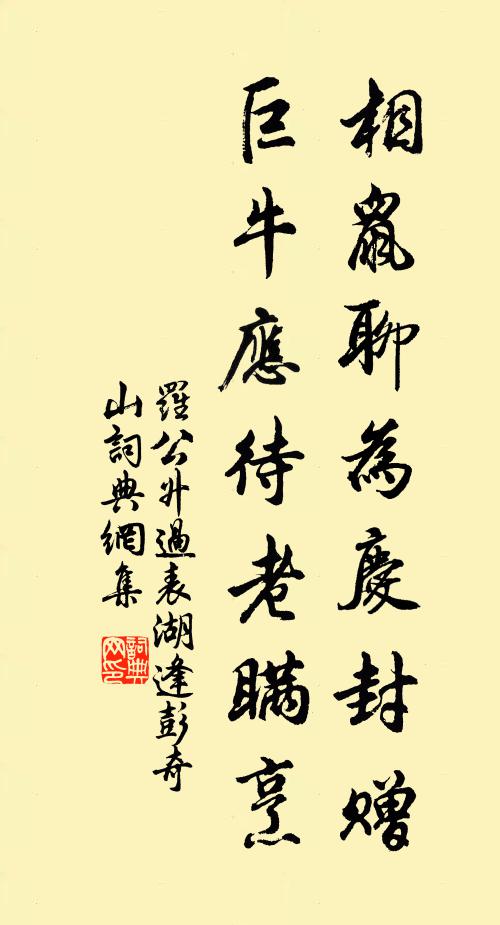 相鼠聊為慶封贈
巨牛應待老瞞烹
羅公升過表湖逢彭奇
山詞典網集
詞典網印